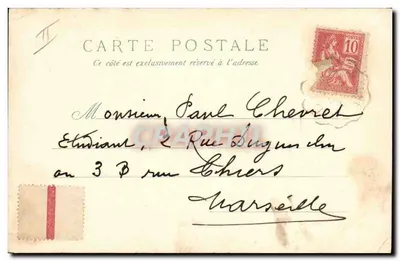 CARTE POSTALE
Ce côté est exclusivement réservé à l'adresse.
10
Monsieur Paul Chevret
Etudiant, 2 Rue Duguesclin
ou 3 B rue Thiers
Marseille